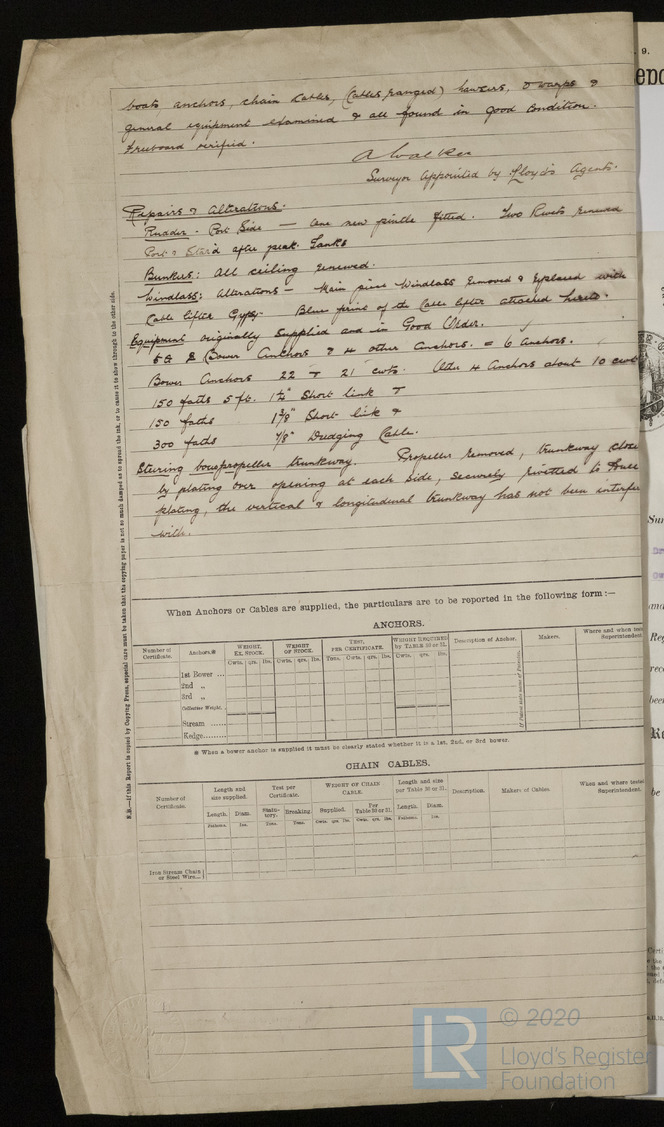 boats, anchors, chain cables, (cables ranged) hawsers, & warps &
general equipment examined & all found in good condition.
Freeboard verified.
A Walker
Surveyor Appointed by Lloyd's Agents.
Repairs & Alterations.
Rudder - Port Side — One new pintle fitted. Two Rivets renewed
Port & Starb'd after peak Tanks
Bunkers: All ceiling renewed.
Windlass: Alterations — Main piece Windlass removed & replaced with
Cable lifter Gypsy. Blue print of the Cable lifter attached hereto.
Equipment originally supplied and in Good Order.
2 Bower Anchors & 4 other Anchors. = 6 Anchors.
Bower Anchors 22 & 21 cwts. Other 4 Anchors about 10 cwt
150 faths 5 ft. 1½" Short link &
150 faths 1⅜" Short link &
300 faths ⅞" Dredging Cable.
Steering bow propeller trunkway. Propeller removed, trunkway close
by plating over opening at each side, securely rivetted to
plating, the vertical & longitudinal trunkway has not been interfe
with.
N.B.—If this Report is copied by Copying Press, especial care must be taken that the copying paper is not so much damped as to spread the ink, or to cause it to show through to the other side.
When Anchors or Cables are supplied, the particulars are to be reported in the following form :—
ANCHORS.
Number of Certificate. Anchors.* WEIGHT, EX. STOCK. WEIGHT OF STOCK. TEST, PER CERTIFICATE. WEIGHT REQUIRED by TABLE 30 or 31. Description of Anchor. Makers. Where and when tested Superintendent.
Cwts. qrs. lbs. Cwts. qrs. lbs. Tons. Cwts. qrs. lbs. Cwts. qrs. lbs.
1st Bower ...
2nd „
3rd „
Collective Weight.
Stream ......
Kedge........
* When a bower anchor is supplied it must be clearly stated whether it is a 1st, 2nd, or 3rd bower.
CHAIN CABLES.
Number of Certificate. Length and size supplied. Test per Certificate. WEIGHT OF CHAIN CABLE. Length and size per Table 30 or 31. Description. Makers of Cables. When and where tested Superintendent.
Length. Diam. Statutory. Breaking. Supplied. Per Table 30 or 31. Length. Diam.
Fathoms. Ins. Tons. Tons. Cwts. qrs. lbs. Cwts. qrs. lbs. Fathoms. Ins.
Iron Stream Chain or Steel Wire...
LR
© 2020
Lloyd's Register
Foundation